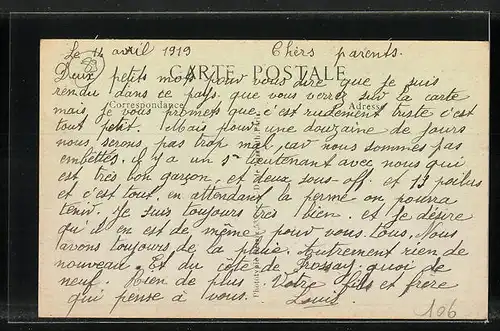 Le 14 avril 1919 Chers parents.
Deux petits mots pour vous dire que je suis
CARTE POSTALE
rendu dans ce pays que vous verrez sur la carte
Correspondance Adresse
mais je vous promets que c'est rudement triste c'est
tout petit. Mais pour une douzaine de jours
nous serons pas trop mal, car nous sommes pas
embêtés. il y a un s/ lieutenant avec nous qui
est très bon garçon, et deux sous-off. et 13 poilus
et c'est tout, en attendant la perme on pourra
tenir. Je suis toujours très bien. et je désire
qu'il en est de même pour vous tous. Nous
avons toujours de la pluie. Autrement rien de
nouveau. Et du côté de Frossay, quoi de
neuf. Rien de plus. Votre fils et frère
qui pense à vous. Louis.
106